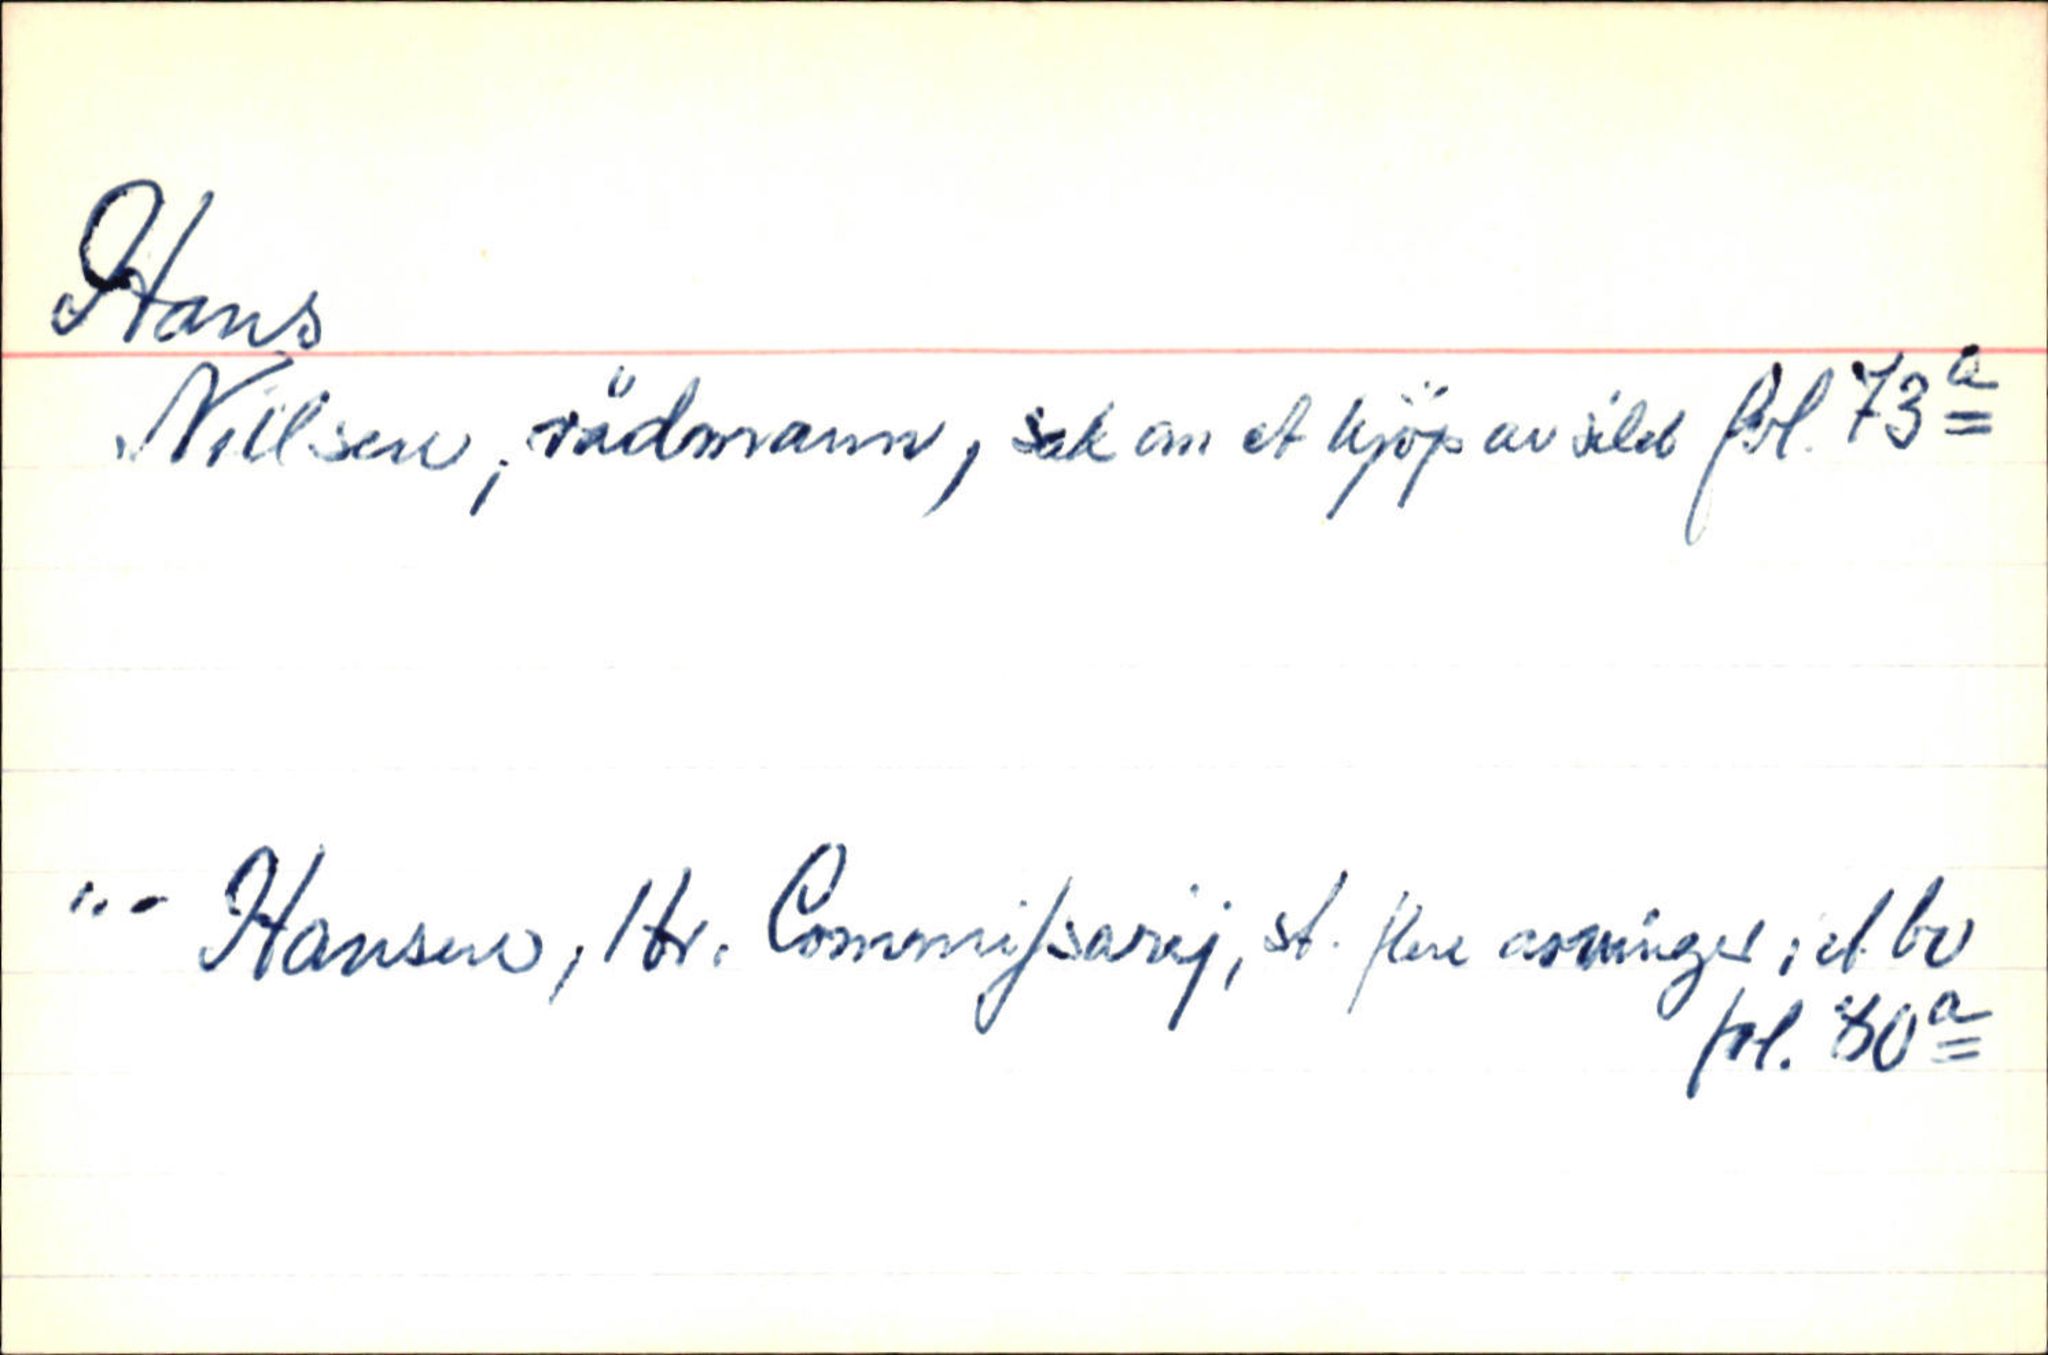 Hans
Nillsen, rådmann, sak om et kjöp av sild fol. 73 a
"- Hansen, Hr. Commissarij, st. flere arvinger i et bo
fol. 80 a